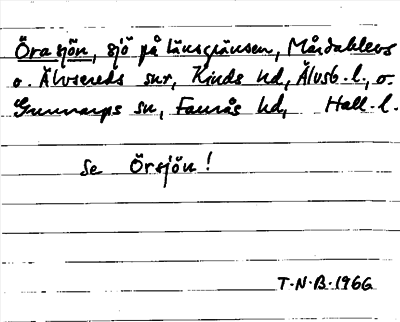 Örasjön, sjö på länsgränsen, Mårdaklevs
o. Älvsereds snr, Kinds hd, Älvsb. l., o.
Gunnarps sn, Faurås hd, Hall. l.
Se Örsjön!
T.N.B. 1966